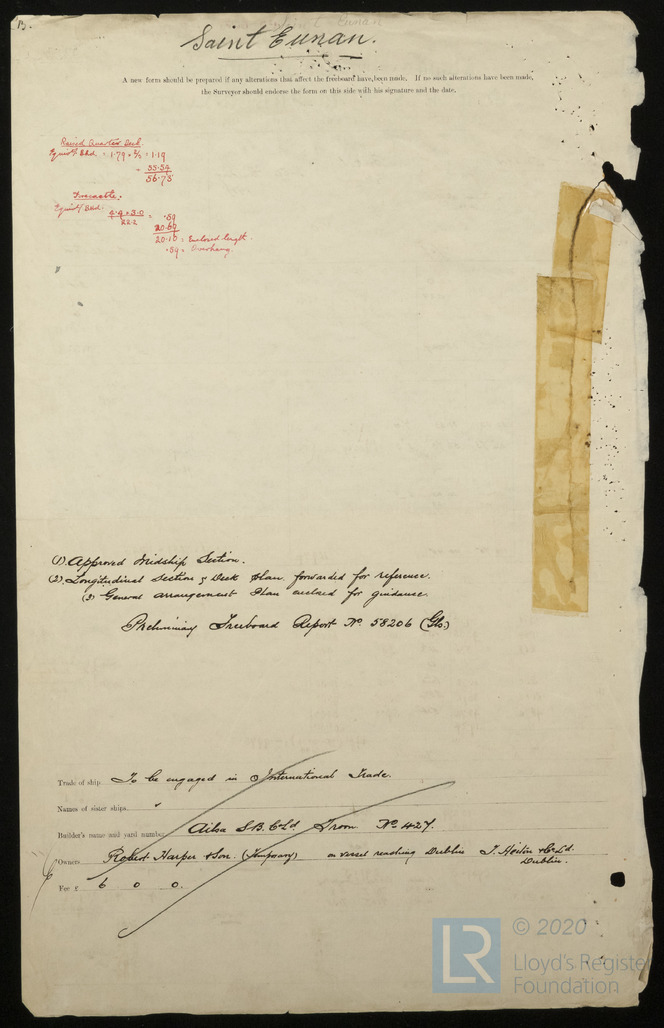 B.
Saint Eunan.
A new form should be prepared if any alterations that affect the freeboard have been made. If no such alterations have been made,
the Surveyor should endorse the form on this side with his signature and the date.
Raised Quarter Deck.
Equivt. Bkd. = 1.79 × 2/3 = 1.19
55.54
56.73
Forecastle.
Equivt. Bkd. 4.4 × 3.0 = .59
22.2
20.69
20.10 = Enclosed length.
.59 = Overhang.
(1) Approved Midship Section.
(2) Longitudinal Section & Deck Plan forwarded for reference.
(3) General arrangement Plan enclosed for guidance.
Preliminary Freeboard Report No. 58206 (Gls.)
Trade of ship To be engaged in International Trade.
Names of sister ships "
Builder's name and yard number Ailsa S.B. Co Ld Troon. No 427.
Owners Robert Harper & Son. (Temporary) on vessel reaching Dublin J. Hoslin & Co Ld.
Dublin.
Fee £ 6 0 0.
© 2020
LR Lloyd's Register
Foundation